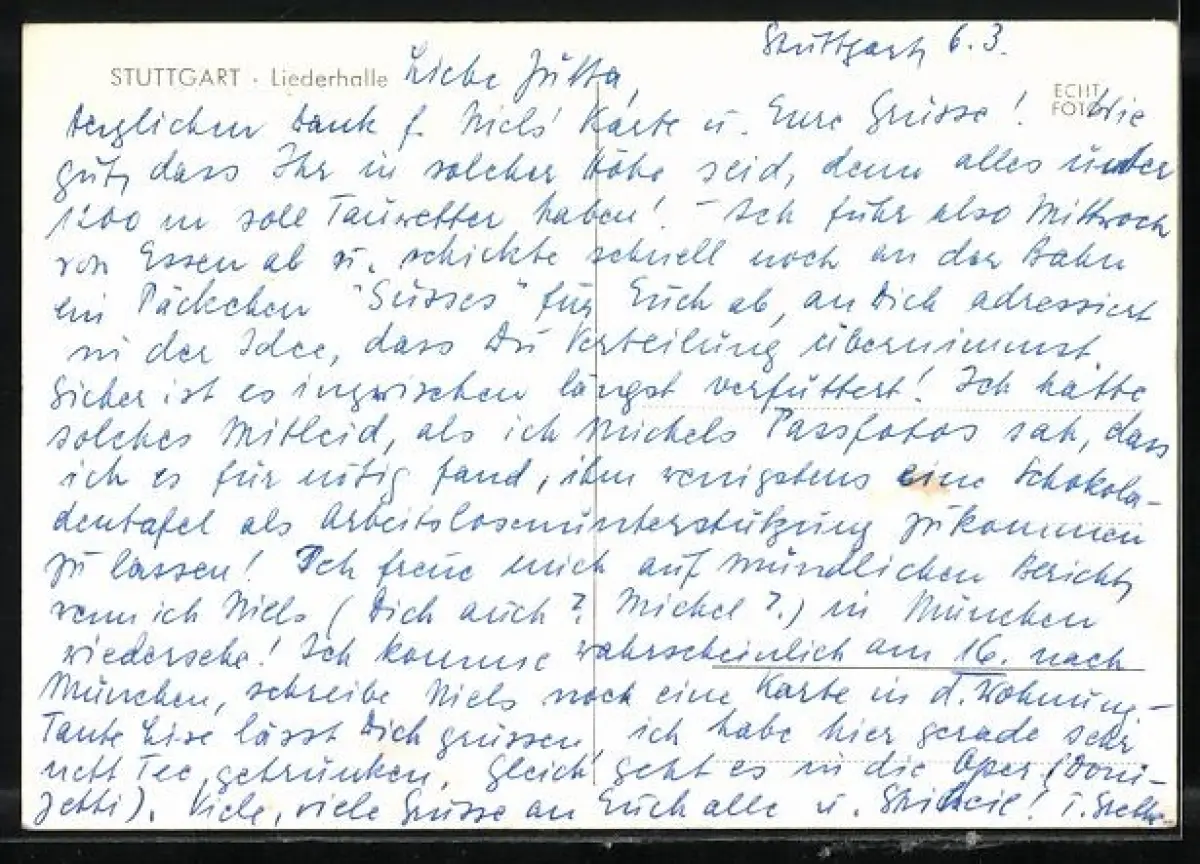 Stuttgart, 6.3.
STUTTGART · Liederhalle
Liebe Jutta,
ECHT
FOTO
herzlichen Dank f. Niels' Karte u. Eure Grüsse! Wie
gut, dass Ihr in solcher Höhe seid, denn alles unter
1200 m soll Tauwetter haben! - Ich fuhr also Mittwoch
von Essen ab u. schickte schnell noch an der Bahn
ein Päckchen "Süsses" für Euch ab, an Dich adressiert
in der Idee, dass Du Verteilung übernimmst.
Sicher ist es inzwischen längst verfüttert! Ich hatte
solches Mitleid, als ich Michels Passfotos sah, dass
ich es für nötig fand, ihm wenigstens eine Schokola-
dentafel als Arbeitslosenunterstützung zukommen
zu lassen! Ich freue mich auf mündlichen Bericht,
wenn ich Niels (Dich auch? Michel?) in München
wiedersehe! Ich komme wahrscheinlich am 16. nach
München, schreibe Niels noch eine Karte in d. Wohnung. -
Tante Lise lässt Dich grüssen, ich habe hier gerade sehr
nett Tee getrunken. Gleich geht es in die Oper (Doni-
zetti). Viele, viele Grüsse an Euch alle u. Skiheil! T.